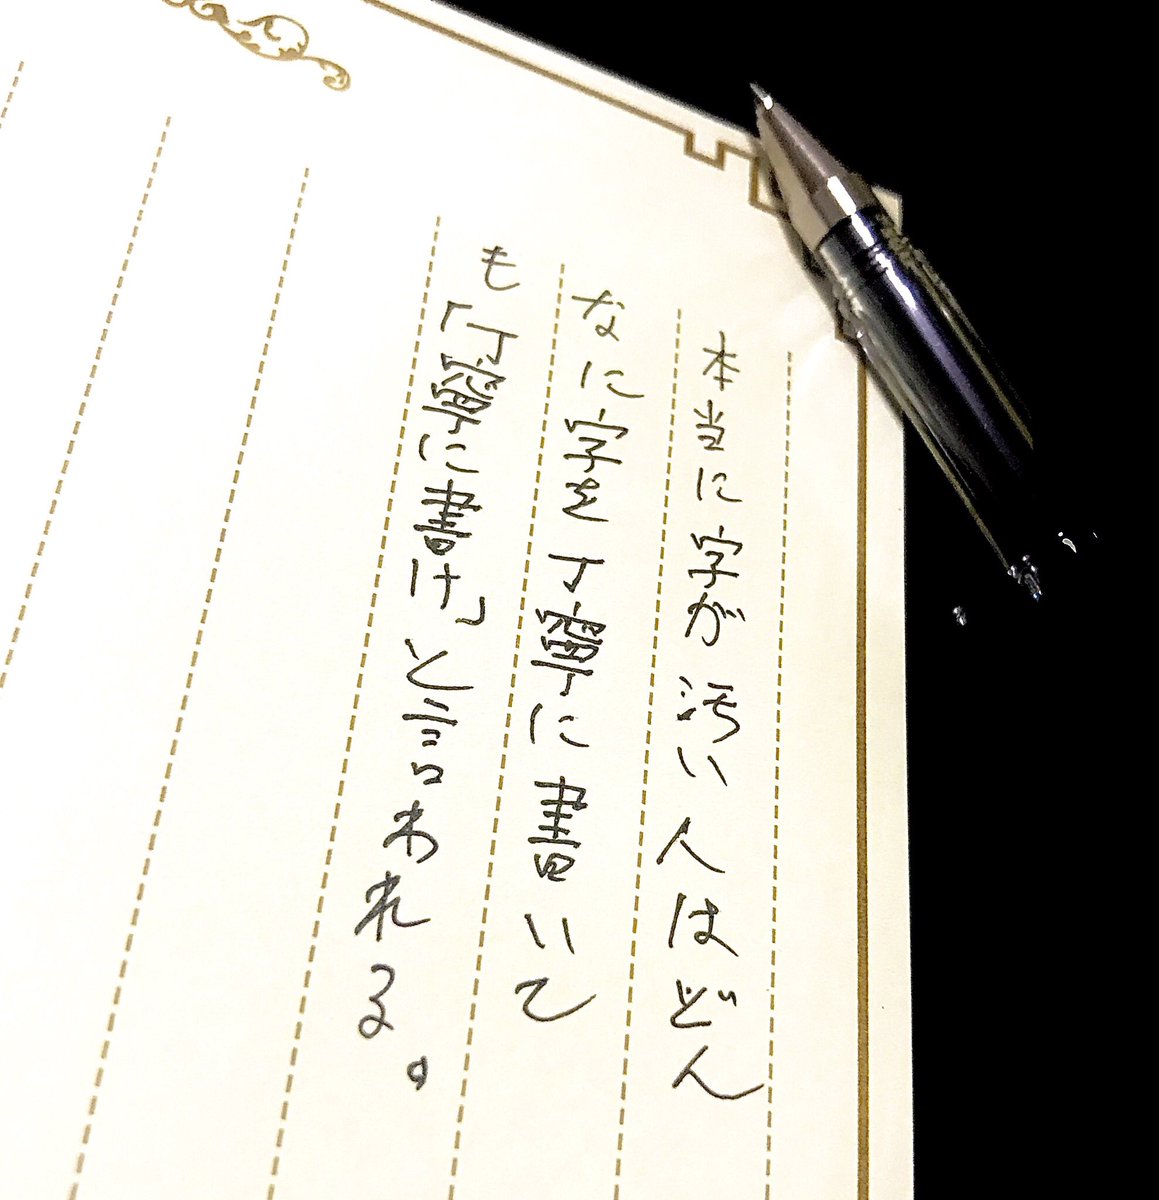 本当に字が汚い人はどん
なに字を丁寧に書いて
も「丁寧に書け」と言われる。